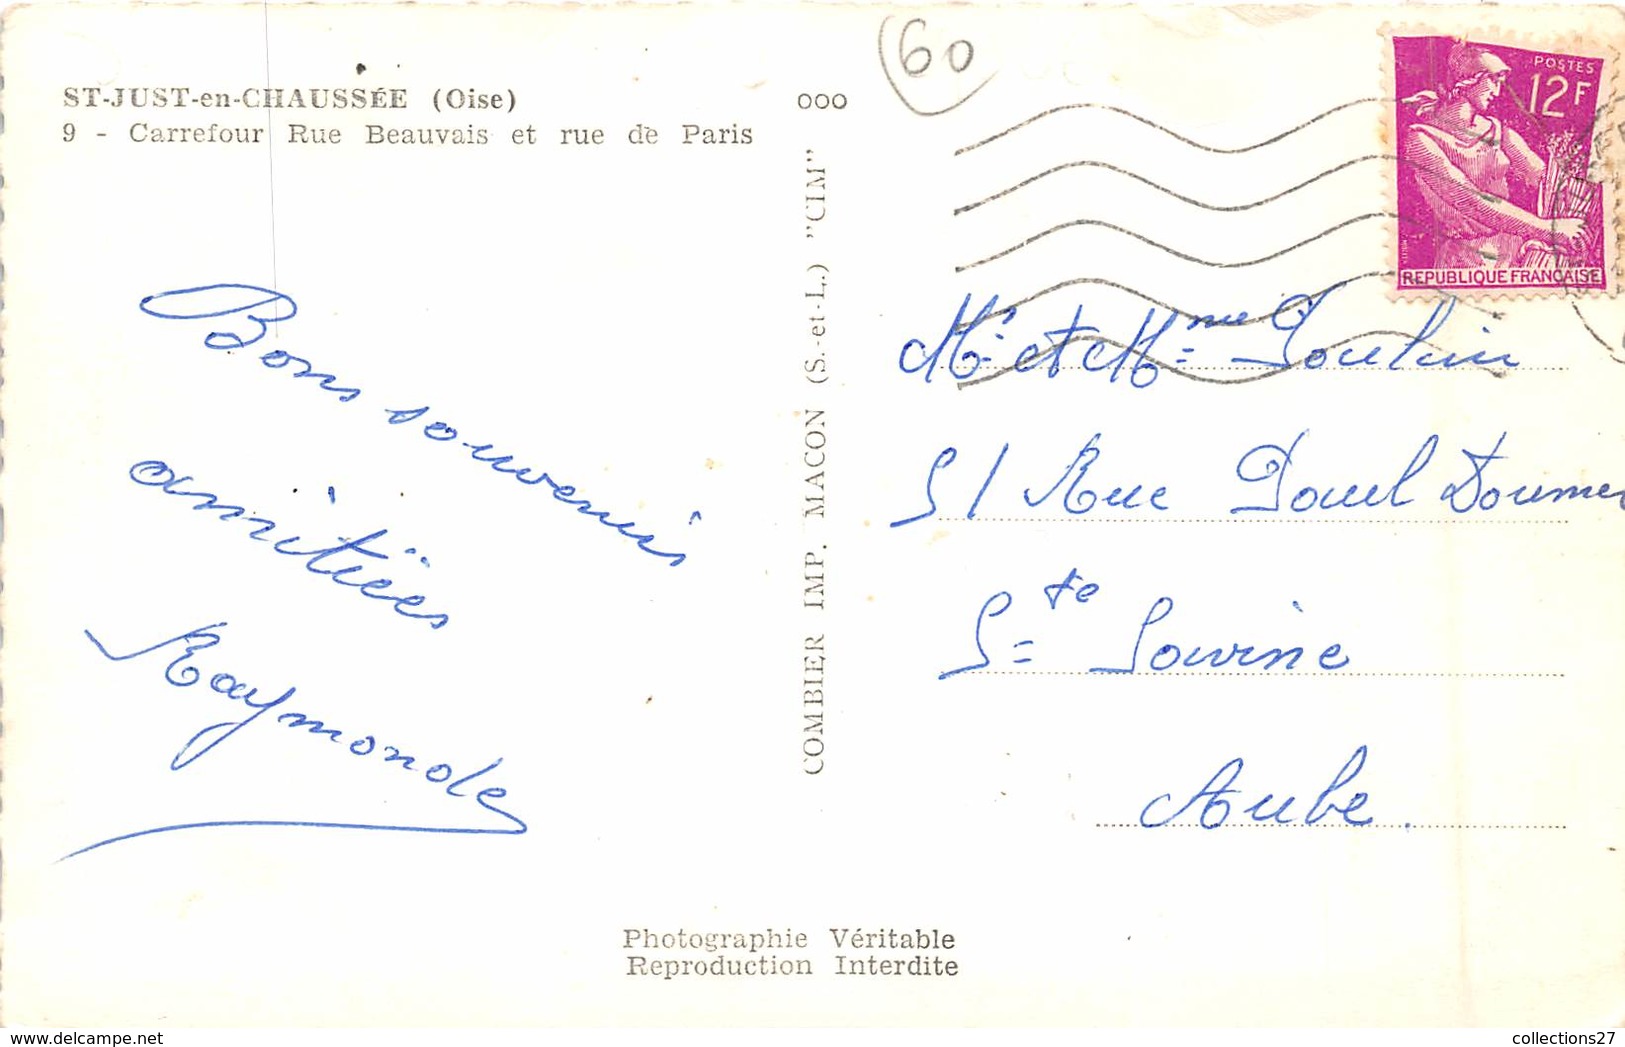 ST-JUST-en-CHAUSSÉE (Oise)
9 - Carrefour Rue Beauvais et rue de Paris
Bons souvenirs
amitiées
Raymonde
COMBIER IMP. MACON (S.-et-L.) "CIM"
000
60
POSTES
12F
REPUBLIQUE FRANÇAISE
Mr et Mme
51 Rue Paul Doumer
Ste Savine
Aube.
Photographie Véritable
Reproduction Interdite
collections27